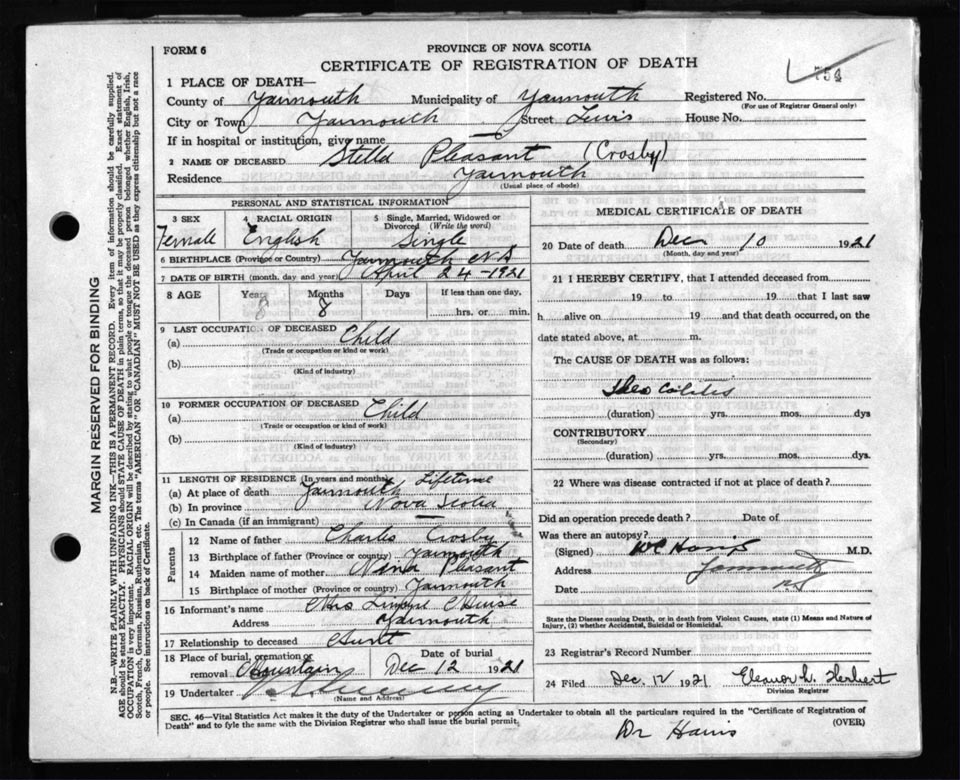 FORM 6
PROVINCE OF NOVA SCOTIA
CERTIFICATE OF REGISTRATION OF DEATH
754
MARGIN RESERVED FOR BINDING
N.B.—WRITE PLAINLY WITH UNFADING INK—THIS IS A PERMANENT RECORD. Every item of information should be carefully supplied.
AGE should be stated EXACTLY. PHYSICIANS should STATE CAUSE OF DEATH in plain terms, so that it may be properly classified. Exact statement of
OCCUPATION is very important. RACIAL ORIGIN will be described by stating to what people or tongue the deceased person belonged whether English, Irish,
Scotch, French, German, Russian, Ruthenian, etc. The terms "AMERICAN" OR "CANADIAN" MUST NOT BE USED as they express citizenship but not a race
or people. See instructions on back of Certificate.
1 PLACE OF DEATH—
County of Yarmouth Municipality of Yarmouth Registered No.
(For use of Registrar General only)
City or Town Yarmouth Street Lewis House No.
If in hospital or institution, give name —
2 NAME OF DECEASED Stella Pleasant (Crosby)
Residence Yarmouth
(Usual place of abode)
PERSONAL AND STATISTICAL INFORMATION
3 SEX 4 RACIAL ORIGIN 5 Single, Married, Widowed or
Divorced (Write the word)
Female English Single
6 BIRTHPLACE (Province or Country) Yarmouth N.S
7 DATE OF BIRTH (month, day and year) April 24-1921
8 AGE Years Months Days If less than one day,
8 8 hrs. or min.
9 LAST OCCUPATION OF DECEASED
(a) Child
(Trade or occupation or kind or work)
(b)
(Kind of industry)
10 FORMER OCCUPATION OF DECEASED
(a) Child
(Trade or occupation or kind of work)
(b)
(Kind of industry)
11 LENGTH OF RESIDENCE (In years and months) Lifetime
(a) At place of death Yarmouth
(b) In province Nova Scotia
(c) In Canada (if an immigrant) —
Parents
12 Name of father Charles Crosby
13 Birthplace of father (Province or country) Yarmouth
14 Maiden name of mother Nina Pleasant
15 Birthplace of mother (Province or country) Yarmouth
16 Informant's name Mrs
Address Yarmouth
17 Relationship to deceased Aunt
18 Place of burial, cremation or removal Mountain Date of burial Dec 12 1921
19 Undertaker
(Name and Address)
MEDICAL CERTIFICATE OF DEATH
20 Date of death Dec 10 1921
(Month, day and year)
21 I HEREBY CERTIFY, that I attended deceased from
19 to 19 that I last saw
h alive on 19 and that death occurred, on
date stated above, at m.
The CAUSE OF DEATH was as follows:
(duration) yrs. mos. dys
CONTRIBUTORY
(Secondary)
(duration) yrs. mos. dys.
22 Where was disease contracted if not at place of death?
Did an operation precede death? Date of
Was there an autopsy?
(Signed) Harris M.D.
Address Yarmouth
Date NS
State the Disease causing Death, or in death from Violent Causes, state (1) Means and Nature of
Injury, (2) whether Accidental, Suicidal or Homicidal.
23 Registrar's Record Number
24 Filed Dec. 12 1921 Eleanor L. Herbert
Division Registrar
SEC. 46—Vital Statistics Act makes it the duty of the Undertaker or person acting as Undertaker to obtain all the particulars required in the "Certificate of Registration of
Death" and to fyle the same with the Division Registrar who shall issue the burial permit.
(OVER)
Dr Harris